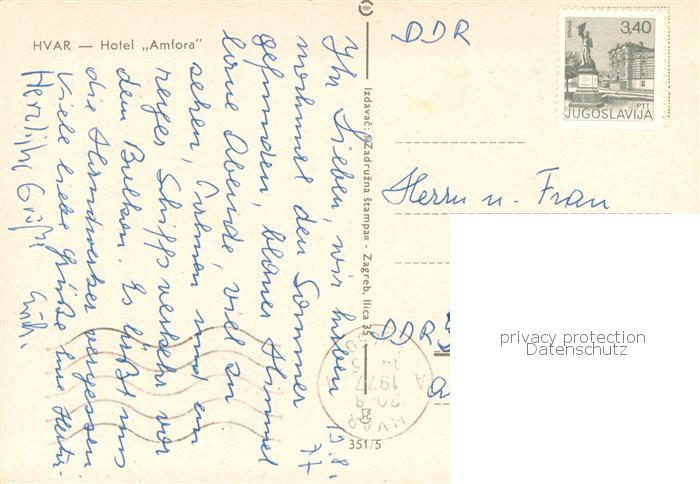 HVAR — Hotel „Amfora"
19.8.77
Ihr Lieben, wir haben
nochmal den Sommer
gefunden, blauer Himmel
laue Abende viel zu
sehen, und ein
reges Schiffsverkehr vor
dem Balkon. Es läßt uns
die Handwerker vergessen
Viele liebe Grüße Eure
Herzliche Grüße
Izdavač: »Zadružna štampa« - Zagreb, Ilica 35
351/5
DDR
3,40
PTT
JUGOSLAVIJA
Herrn u. Frau
DDR
HVAR
1977
privacy protection
Datenschutz